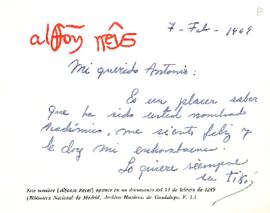 alfon reyes
7 - Feb - 1969
Mi querido Antonio:
Es un placer saber
que ha sido usted nombrado
Académico, me siento feliz y
le doy mi enhorabuena.
Lo quiere siempre
su
Este nombre (Alfonso Reyes) aparece en un documento del 11 de febrero de 1289
(Biblioteca Nacional de Madrid, Archivo Monástico de Guadalupe, P. 1.)